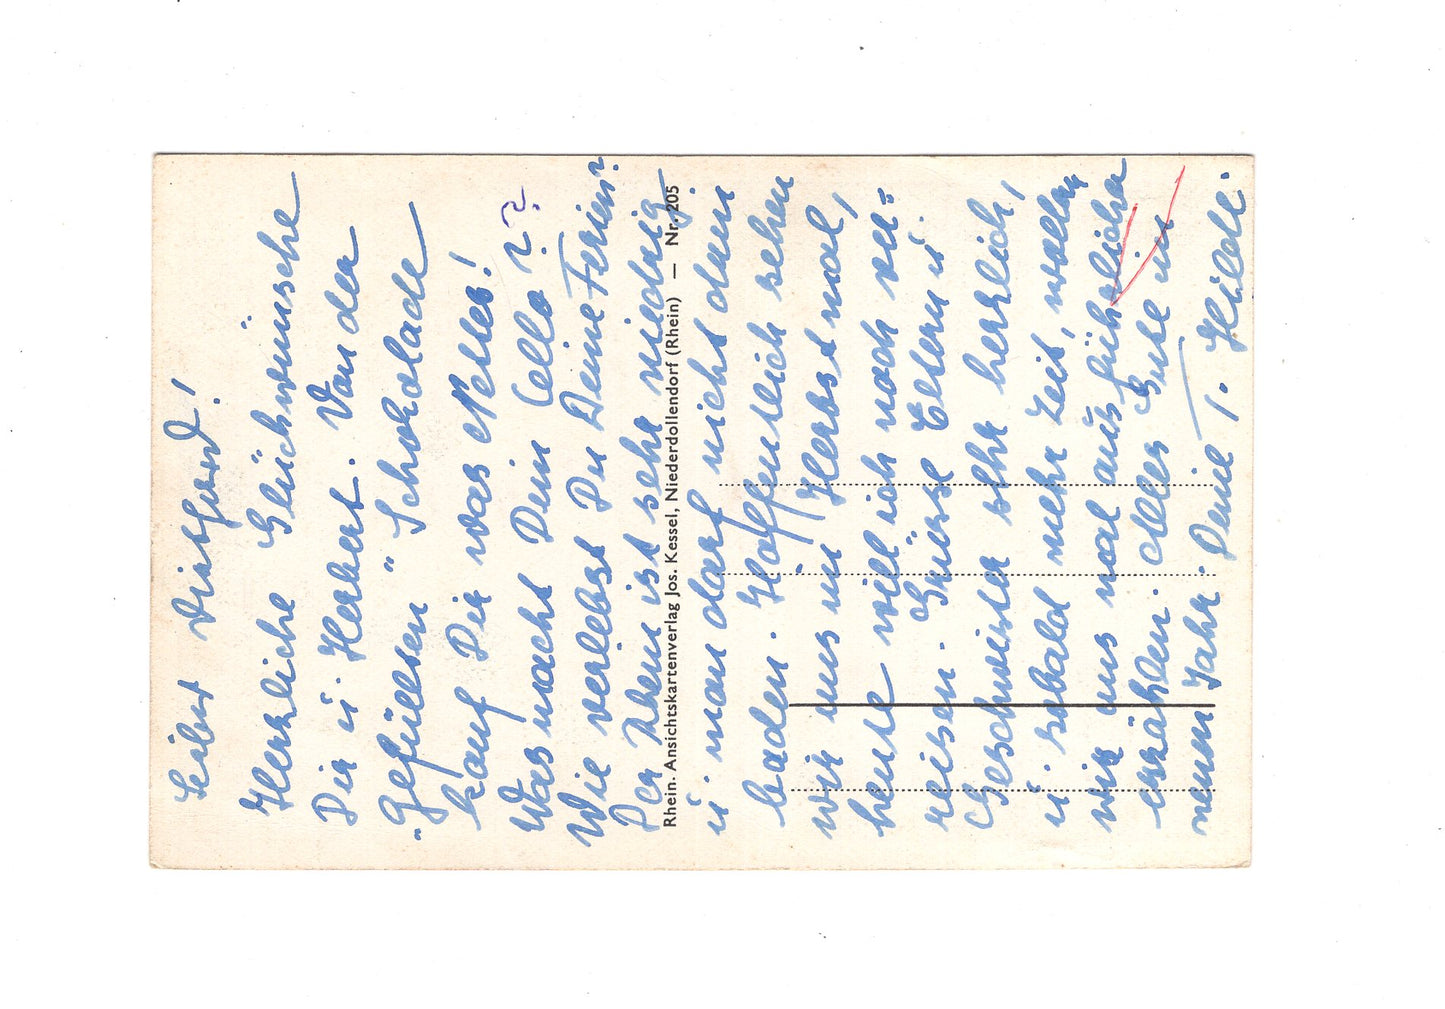 Lieber Dietgard!
Herzliche Glückwünsche
Dir u. Herbert. Von der
"gefüllten" Schokolade
kauf Dir was Nettes!
Was macht Dein Cello??
Wie verlebst Du Deine Ferien?
Der Rhein ist sehr niedrig
Rhein. Ansichtskartenverlag Jos. Kessel, Niederdollendorf (Rhein) — Nr. 205
u. man darf nicht drin
baden. Hoffentlich sehen
wir uns im Herbst mal,
heute will ich noch ver=
reisen. Grüsse Eltern u.
Geschwister sehr herzlich,
u. sobald mehr Zeit, wollen
wir uns mal ausführlicher
erzählen. Alles Gute im
neuen Jahr. Deine T. Hilde.